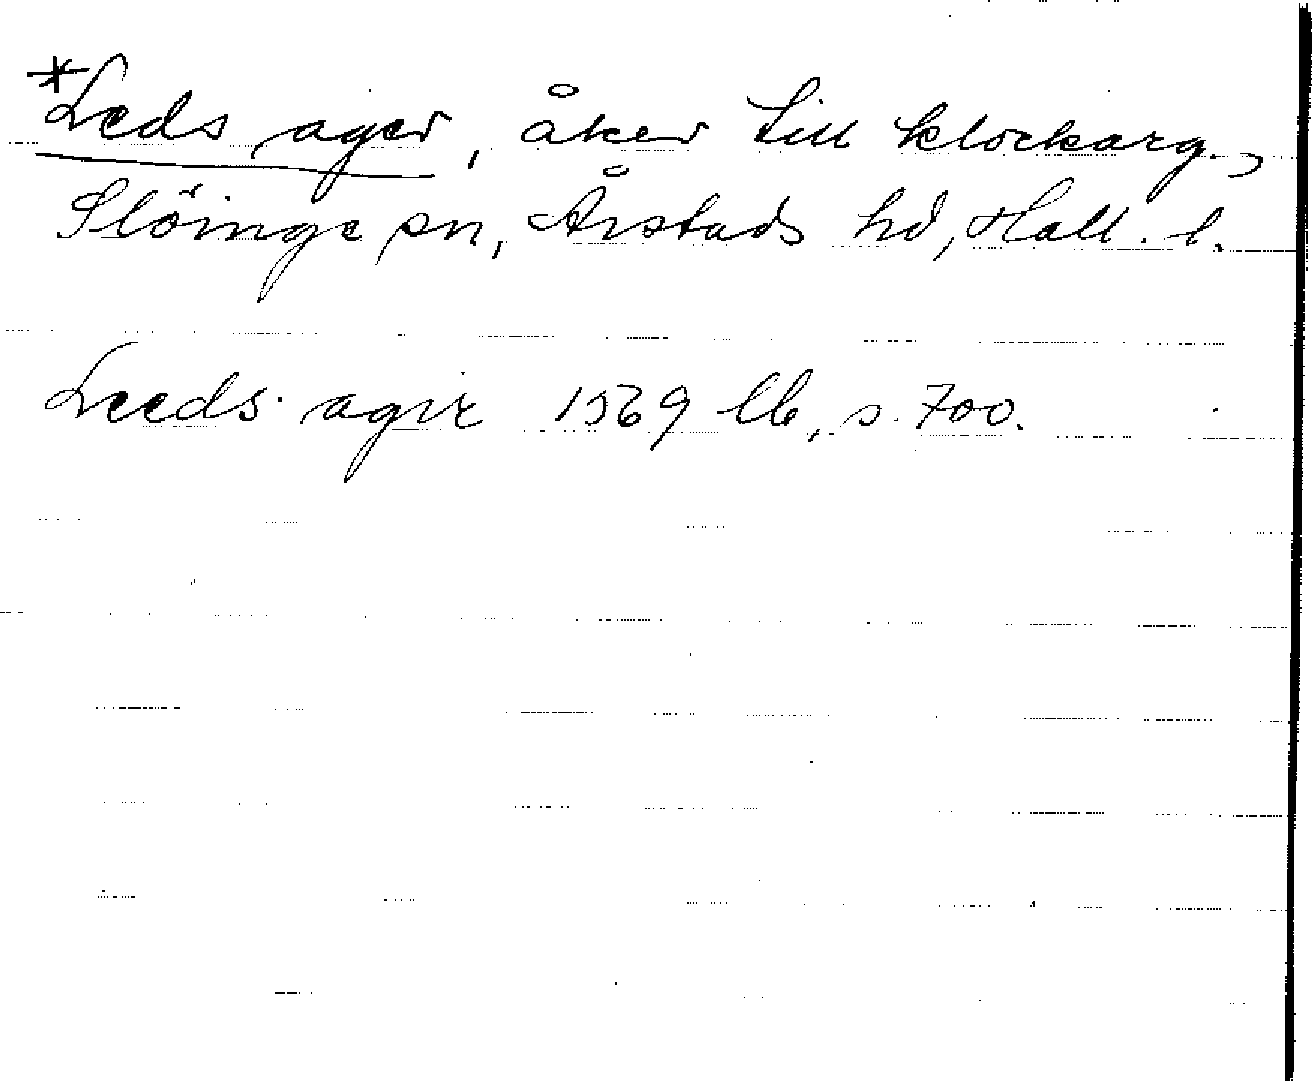 *Leds ager, åker till klockarg.,
Slöinge sn, Årstads hd, Hall. l.
Leeds ager 1569 lb, s. 700.